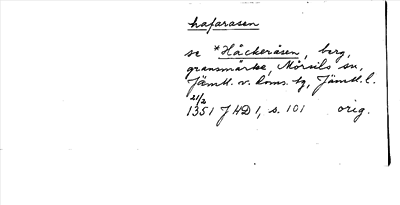 hafarasen
se *Håckeråsen, berg,
gränsmärke, Mörsils sn,
Jämtl. v. doms. tg, Jämtl. l.
21/2
1351 JHD 1, s. 101 orig.